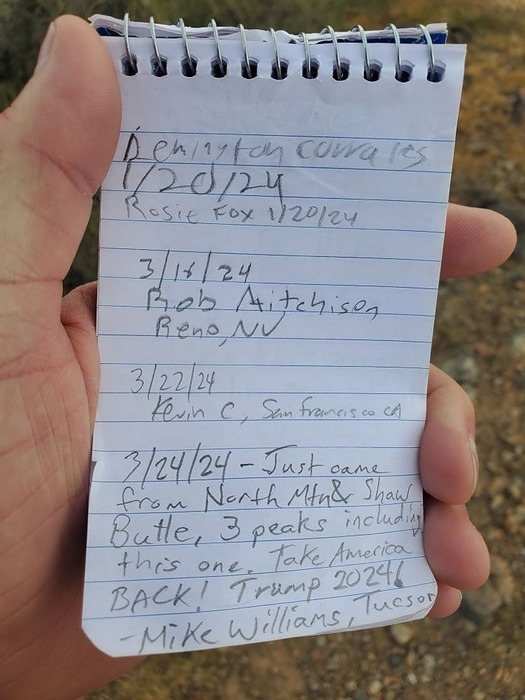 1/20/24
Rosie Fox 1/20/24
3/18/24
Rob Aitchison
Reno, NV
3/22/24
Kevin C, San francisco CA
3/24/24 - Just came
from North Mtn & Shaw
Butte, 3 peaks including
this one. Take America
BACK! Trump 2024!
- Mike Williams, Tucson